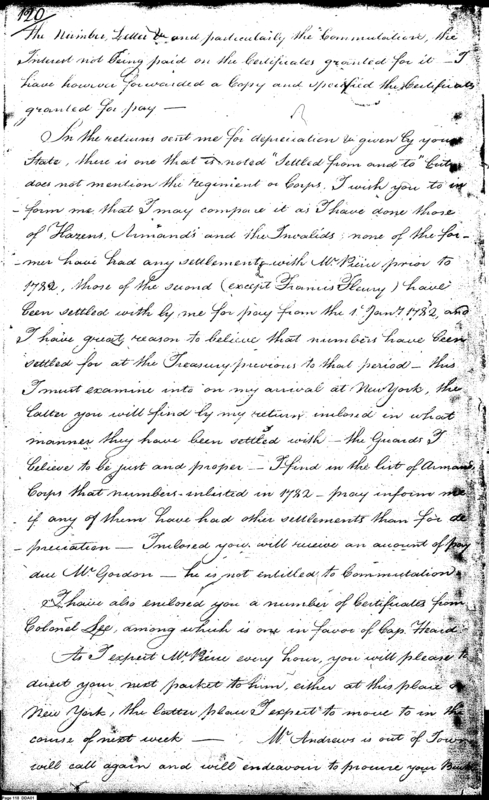 120
The Number, Letter &c and particularly the Commutation, the
Interest not being paid on the Certificates granted for it — I
have however forwarded a Copy and specified the Certificates
granted for pay —
In the returns sent me for depreciation &c given by your
State, there is one that is noted "Settled from and to" but
does not mention the regiment or Corps. I wish you to in
form me that I may compare it as I have done those
of Hazens, Armands and the Invalids; none of the for-
mer have had any settlements with Mr Peirce prior to
1782, those of the second (except Francis Fleury) have
been settled with by me for pay from the 1st Jany 1782, and
I have great reason to believe that numbers have been
settled for at the Treasury previous to that period — this
I must examine into on my arrival at New York, the
latter you will find by my return inclosed in what
manner they have been settled with — the Guards I
believe to be just and proper — I find in the list of Armands
Corps that numbers inlisted in 1782 — pray inform me
if any of them have had other settlements than for de
preciation — Inclosed you will receive an account of pay
due Mr Gordon — he is not entitled to Commutation
I have also enclosed you a number of Certificates from
Colonel Lee, among which is one in favor of Cap. Heard
As I expect Mr Peirce every hour, you will please to
direct your next packet to him, either at this place or
New York, the latter place I expect to move to in the
course of next week — Mr Andrews is out of Town
will call again and will endeavour to procure your
Page 119 DDA01